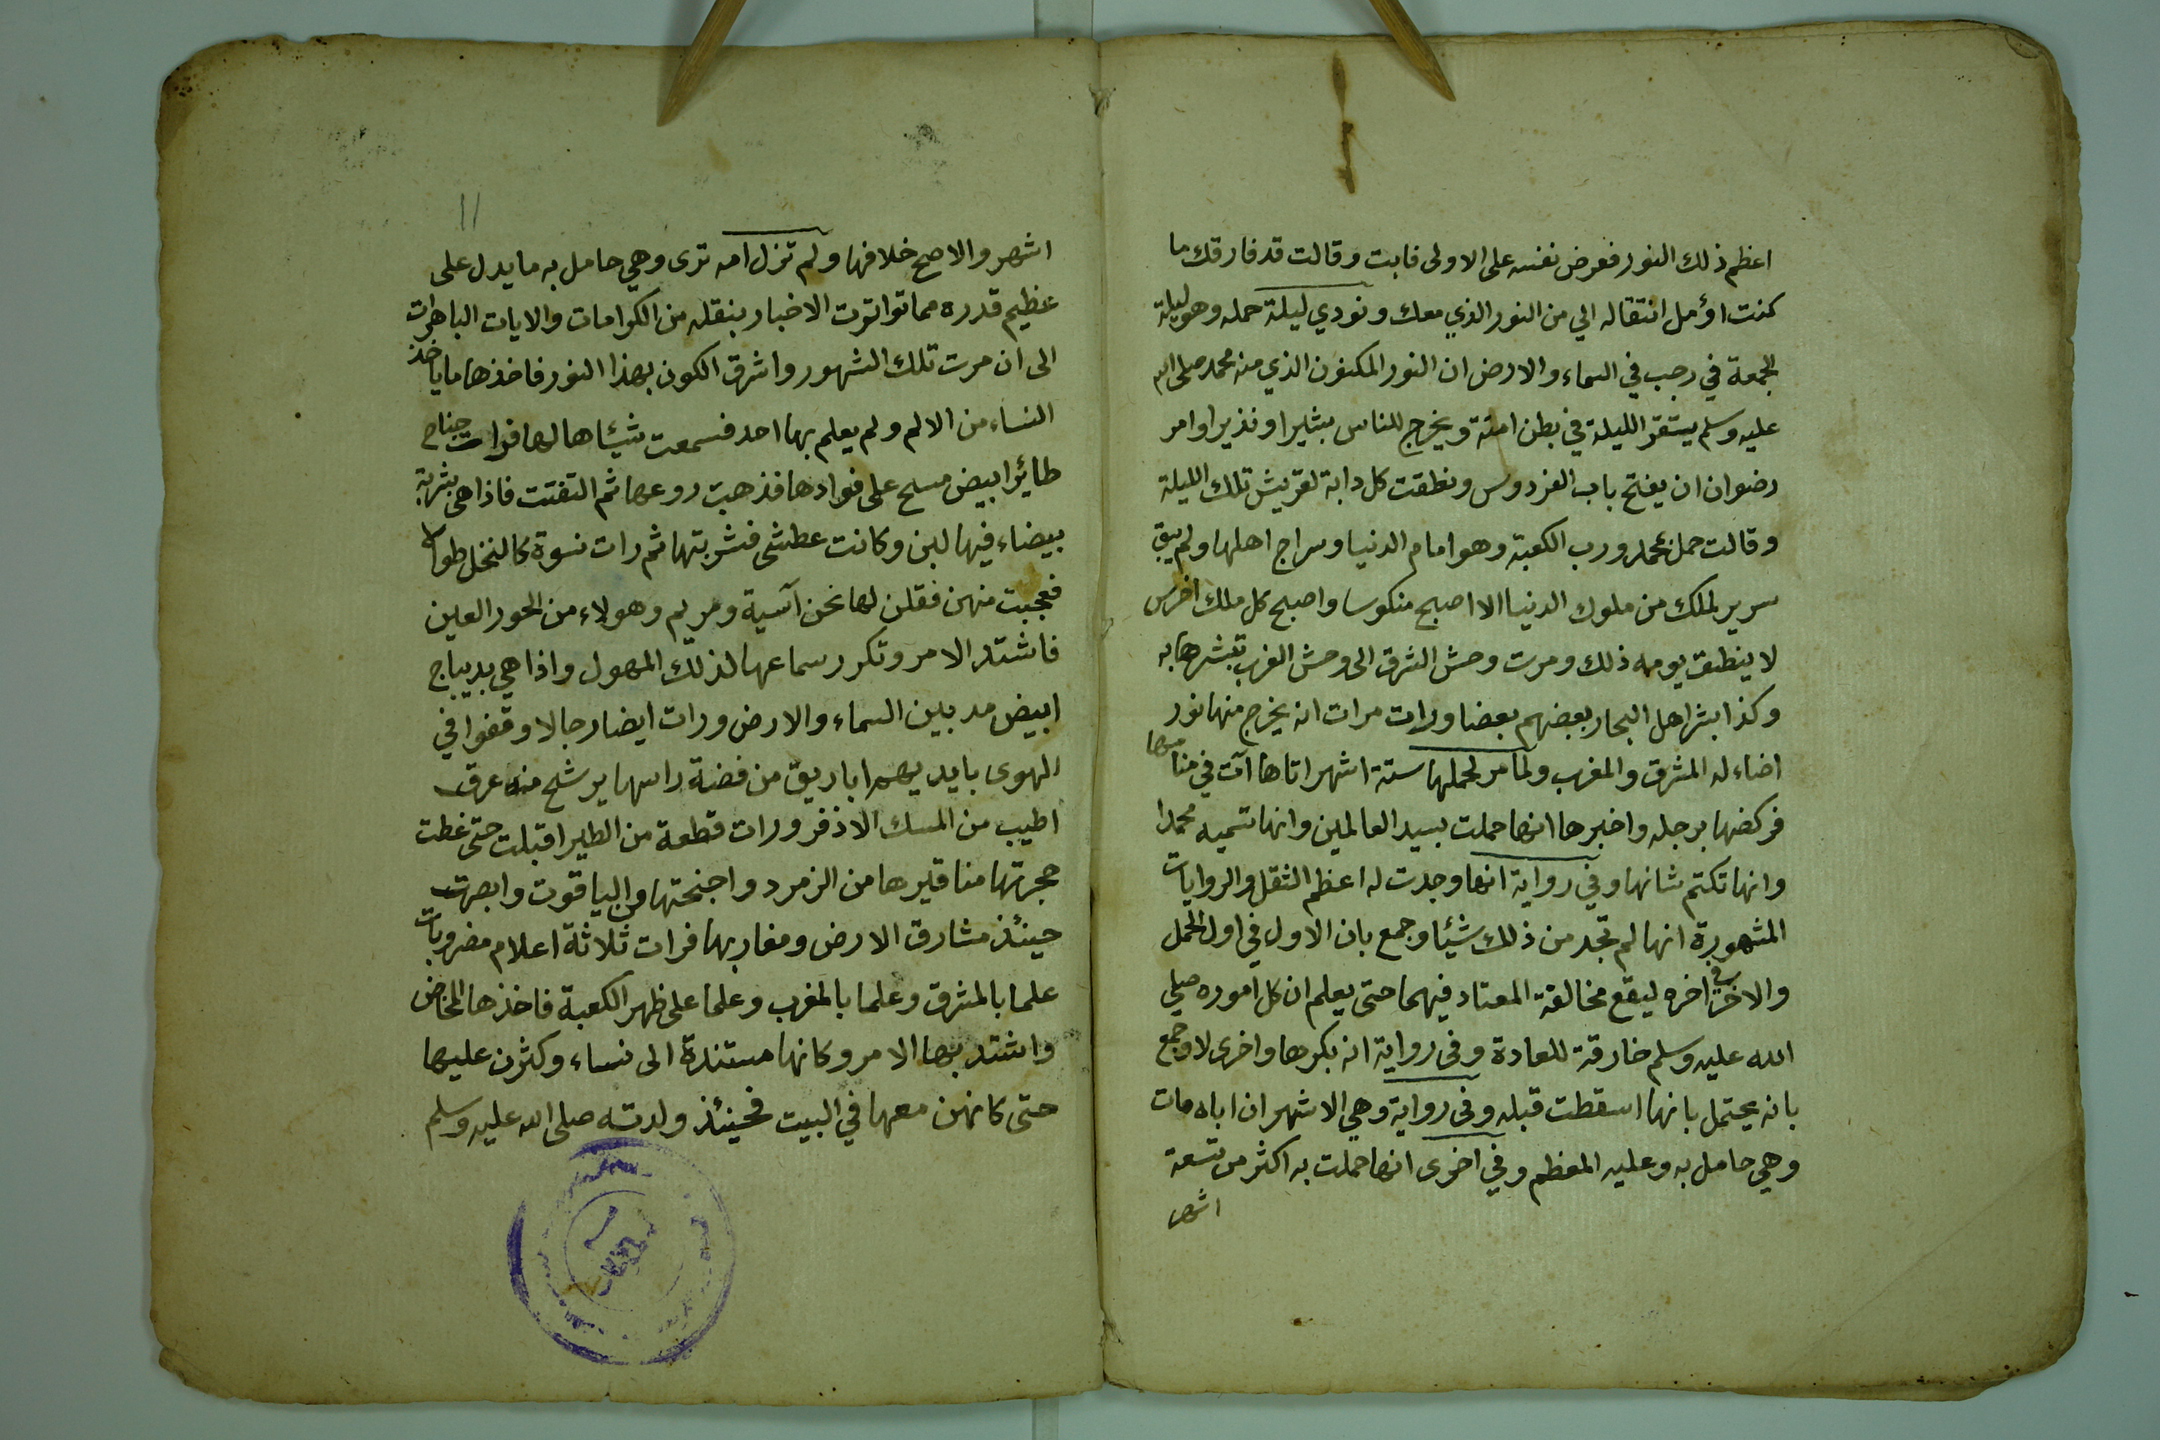 اعظم ذلك النور فعرض نفسه على الاولى فابت وقالت قد فارقك ما
كنت اؤمل انتقاله الي من النور الذي معك ونودي ليلة حمله وهو ليلة
الجمعة في رجب في السماء والارض ان النور المكنون الذي منه محمد صلى الله
عليه وسلم يستقر الليلة في بطن امنة ويخرج للناس بشيرا ونذيرا وامر
رضوان ان يفتح باب الفردوس ونطقت كل دابة لقريش تلك الليلة
وقالت حمل بمحمد ورب الكعبة وهو امام الدنيا وسراج اهلها ولم يبق
سرير لملك من ملوك الدنيا الا اصبح منكوسا واصبح كل ملك اخرس
لا ينطق يومه ذلك ومرت وحش الشرق الى وحش الغرب تبشرها به
وكذا بشر اهل البحار بعضهم بعضا ورات مرات انه يخرج منها نور
اضاء له المشرق والمغرب ولما مر لحملها ستة اشهر اتاها آت في منامها
فركضها برجله واخبرها انها حملت بسيد العالمين وانها تسميه محمدا
وانها تكتم شانها وفي رواية انها وجدت له اعظم الثقل والروايات
المشهورة انها لم تجد من ذلك شيئا وجمع بان الاول في اول الحمل
والاخر في اخره ليقع مخالفة المعتاد فيهما حتى يعلم ان كل اموره صلى
الله عليه وسلم خارقة للعادة وفي رواية انه بكرها واخرى لا وجمع
بانه يحتمل بانها اسقطت قبله وفي رواية وهي الاشهر ان اباه مات
وهي حامل به وعليه المعظم وفي اخرى انها حملت به اكثر من تسعة
اشهر
١١
اشهر والاصح خلافها ولم تزل امه ترى وهي حامل به ما يدل على
عظيم قدره مما تواترت الاخبار بنقله من الكرامات والايات الباهرات
الى ان مرت تلك الشهور واشرق الكون بهذا النور فاخذها ما ياخذ
النساء من الالم ولم يعلم بها احد فسمعت شيئا هالها فرات جناح
طائر ابيض مسح على فوادها فذهبت روعها ثم التفتت فاذا هي بشربة
بيضاء فيها لبن وكانت عطشى فشربتها ثم رات نسوة كالنخل طولا
فعجبت منهن فقلن لها نحن آسية ومريم وهولاء من الحور العين
فاشتد الامر وتكرر سماعها لذلك المهول واذا هي بديباج
ابيض مد بين السماء والارض ورات ايضا رجالا وقفوا في
الهوى بايديهم اباريق من فضة راسها يرشح منه عرق
اطيب من المسك الاذفر ورات قطعة من الطير اقبلت حتى غطت
حجرتها مناقيرها من الزمرد واجنحتها من الياقوت وابصرت
حينئذ مشارق الارض ومغاربها فرات ثلاثة اعلام مضروبات
علما بالمشرق وعلما بالمغرب وعلما على ظهر الكعبة فاخذها المخاض
واشتد بها الامر وكانها مستندة الى نساء وكثرن عليها
حتى كانهن معها في البيت فحينئذ ولدته صلى الله عليه وسلم